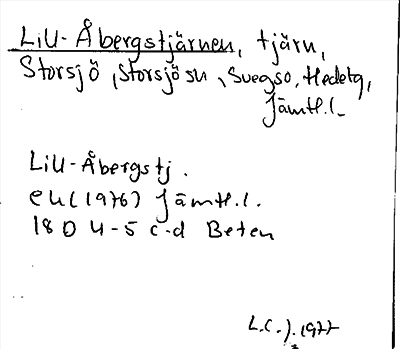 LiU-Åbergstjärnen, tjärn,
Storsjö, Storsjö sn, Svegs o. Hedetg,
Jämtl.l.
LiU-Åbergstj.
ek (1976) Jämtl.l.
18 D 4-5 c-d Beten
L.C.J. 1977